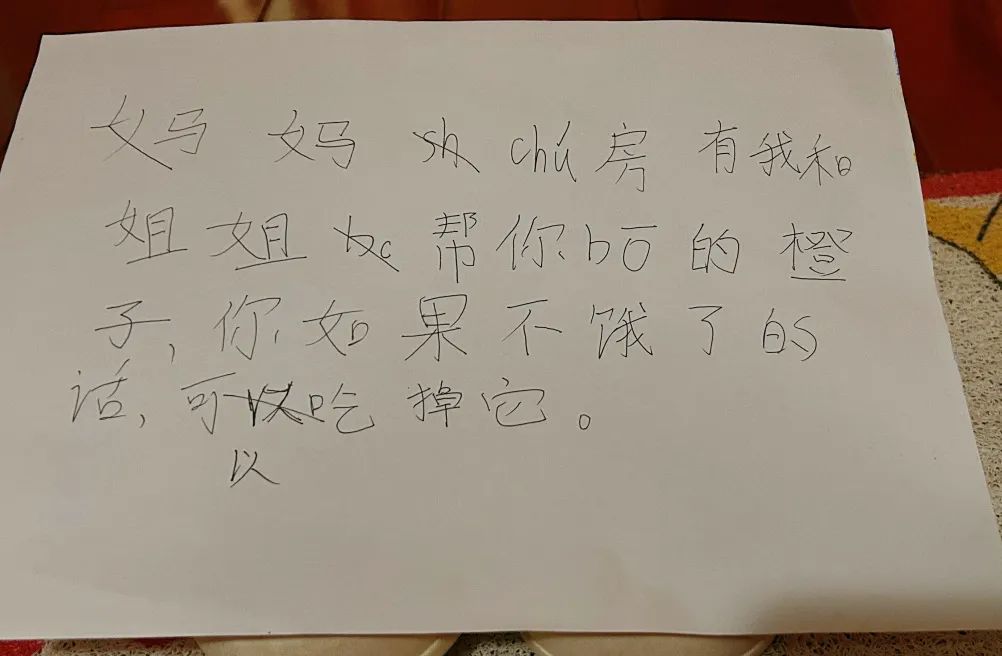 妈 妈 chú房 有我和
姐 姐 帮你bō的 橙
子，你如果不饿了的
话，可以吃掉它。